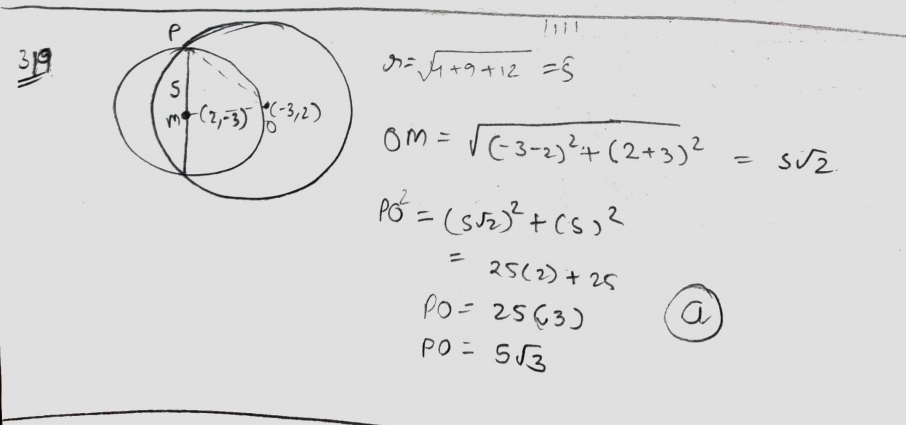 319
P
5
M (2,-3)
(-3,2)
O
r = √4+9+12 = 5
OM = √(-3-2)²+(2+3)² = 5√2
PO² = (5√2)²+(5)²
= 25(2)+25
PO = 25(3)
PO = 5√3
a